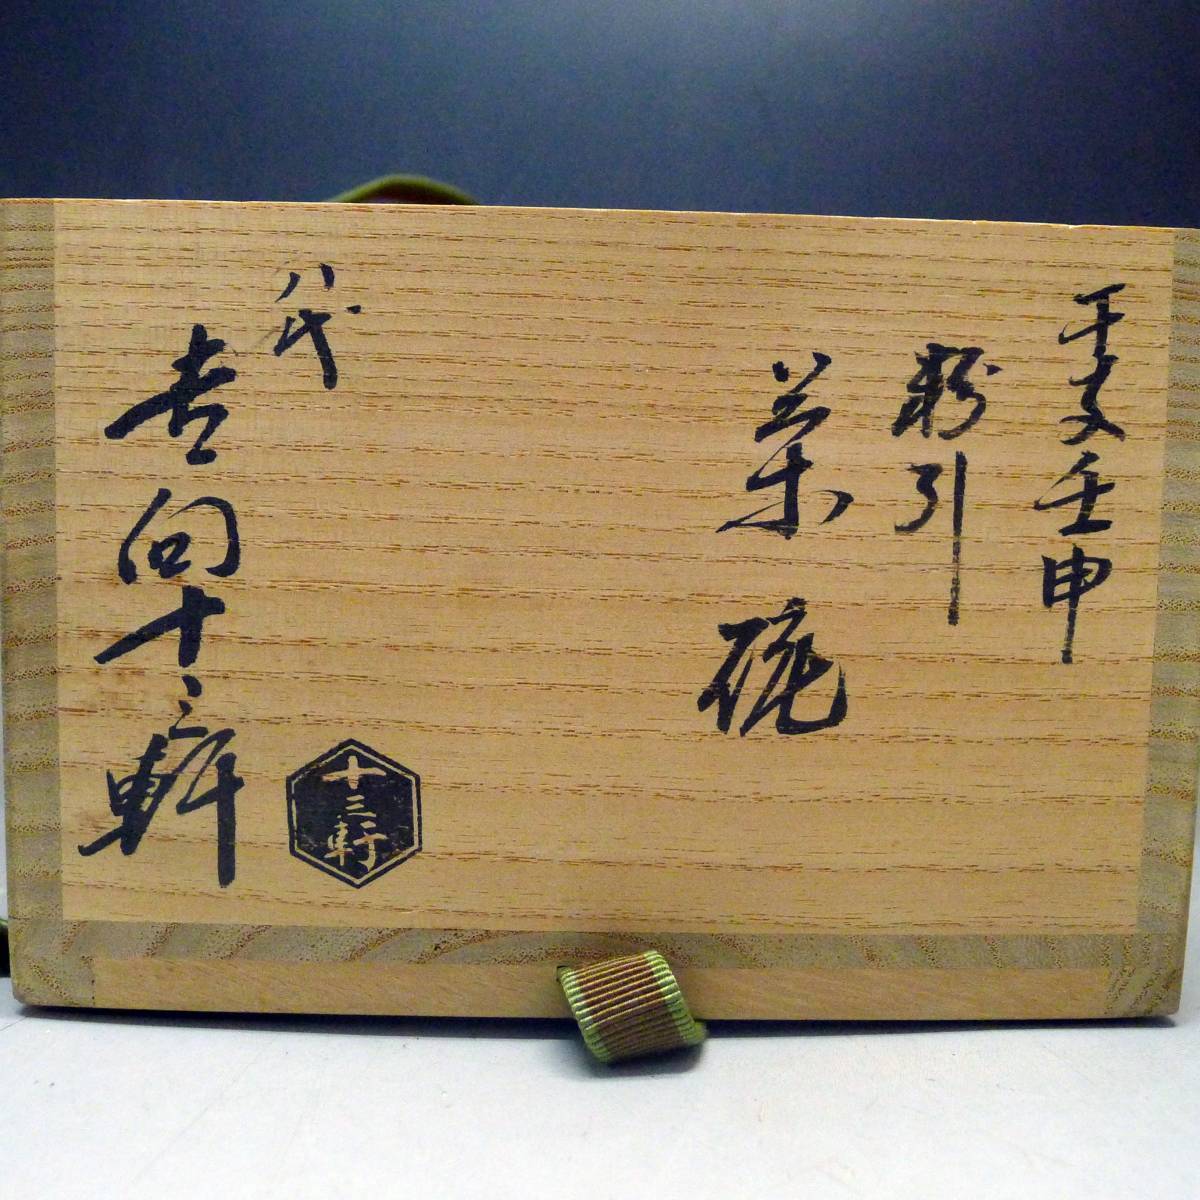 干支壬申
粉引
茶碗
八代
吉向十三軒
十三軒